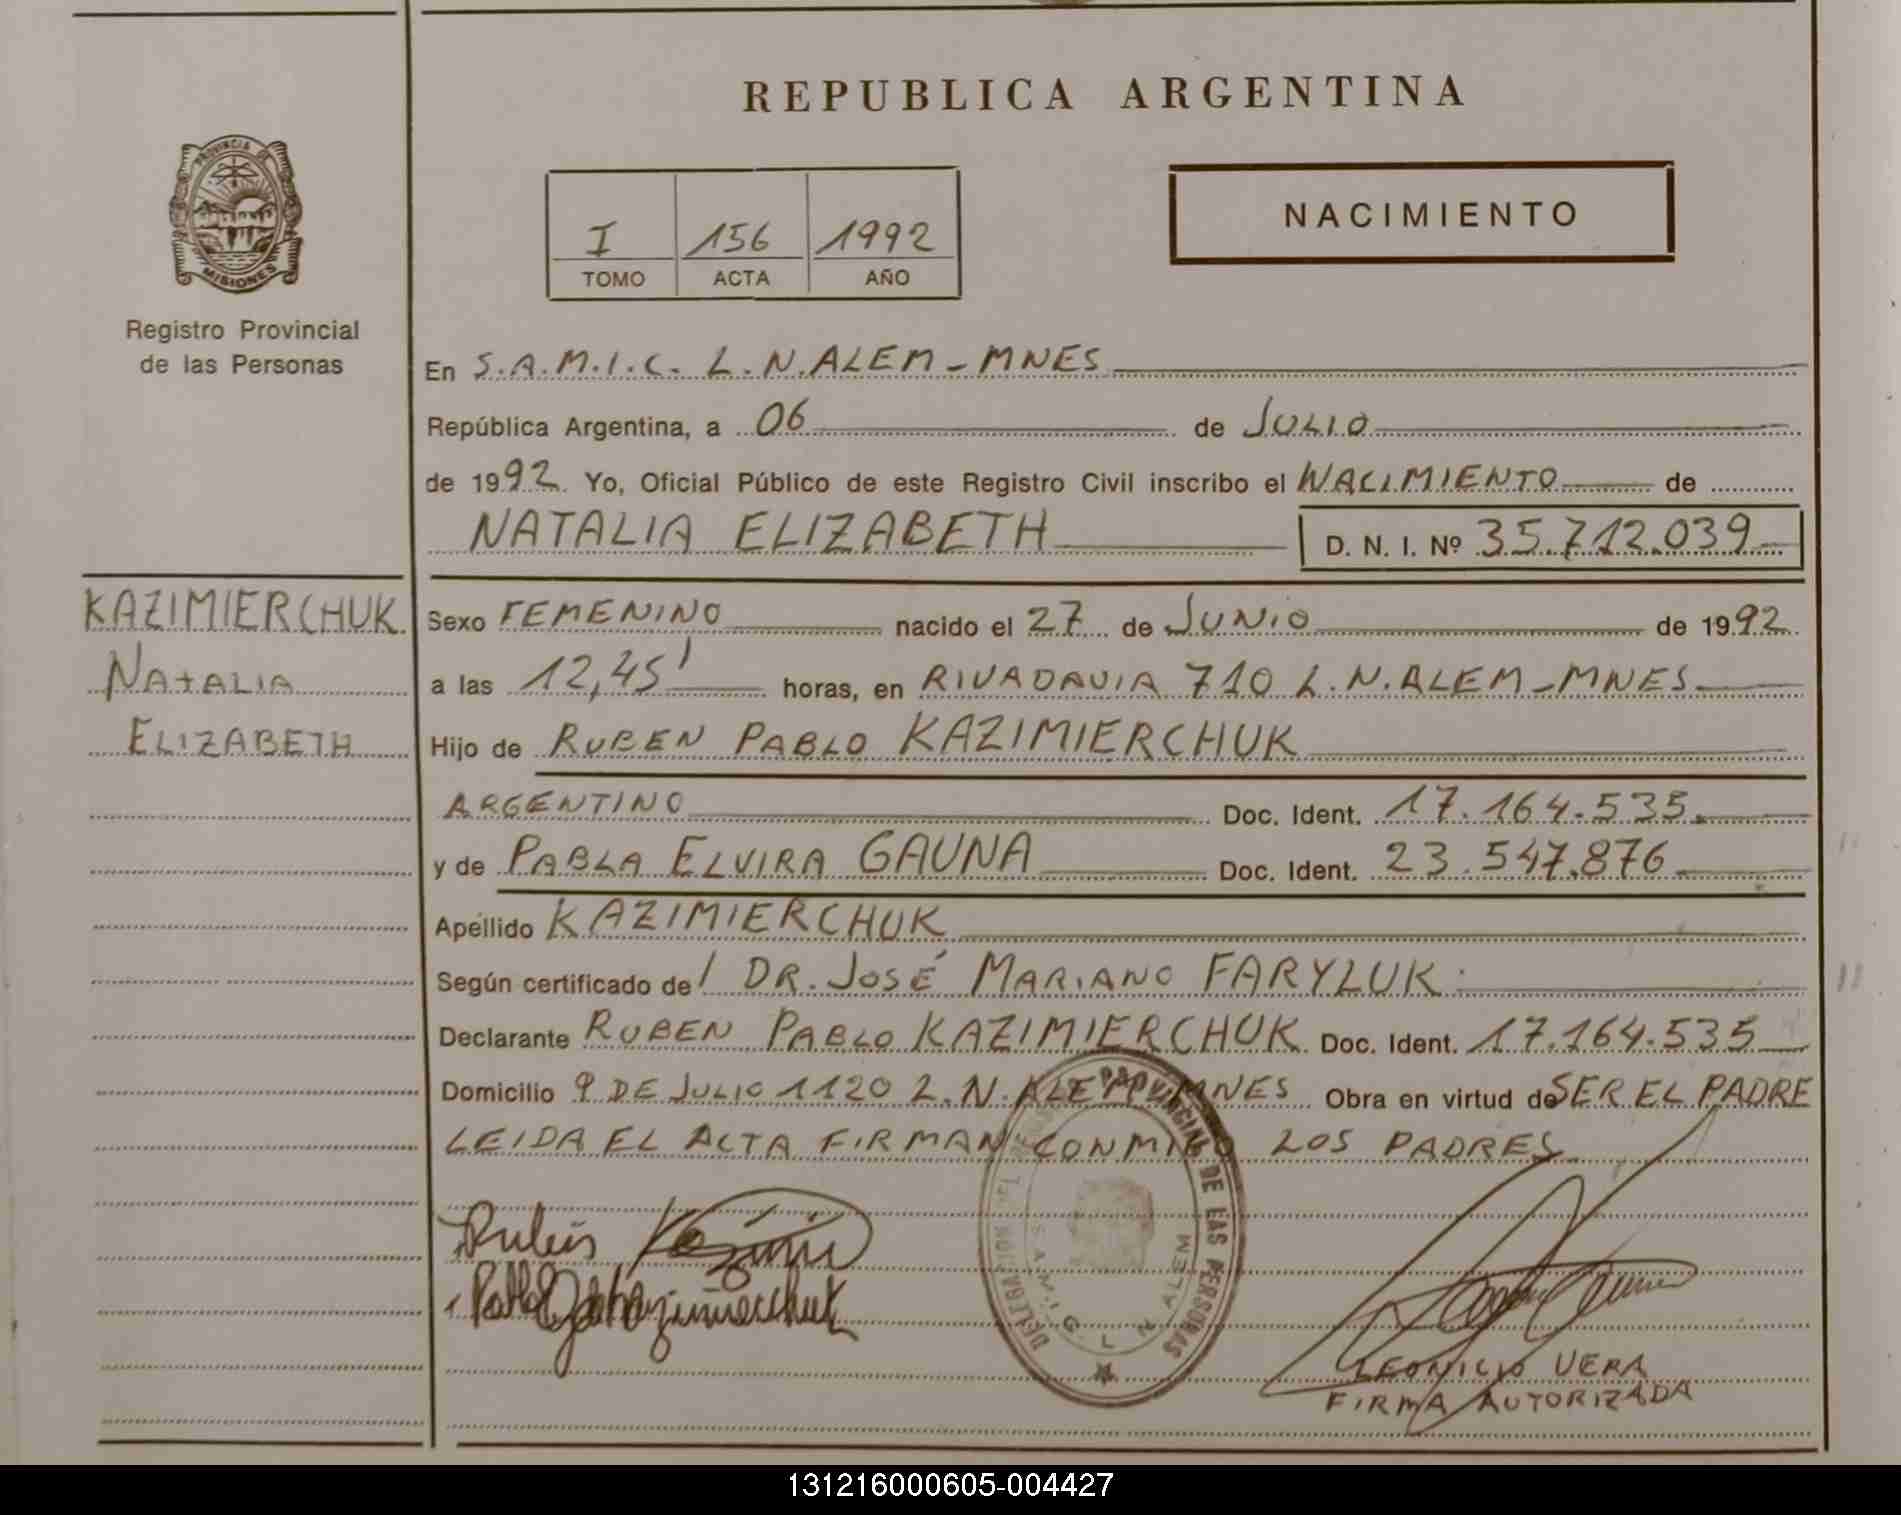 REPUBLICA ARGENTINA
PROVINCIA DE
MISIONES
Registro Provincial
de las Personas
I 156 1992
TOMO ACTA AÑO
NACIMIENTO
En S.A.M.I.C. L.N.ALEM-MNES
República Argentina, a 06 de JULIO
de 1992. Yo, Oficial Público de este Registro Civil inscribo el NACIMIENTO de
NATALIA ELIZABETH D. N. I. Nº 35.712.039
KAZIMIERCHUK
NATALIA
ELIZABETH
Sexo FEMENINO nacido el 27 de JUNIO de 1992
a las 12,45' horas, en RIVADAVIA 710 L.N.ALEM-MNES
Hijo de RUBEN PABLO KAZIMIERCHUK
ARGENTINO Doc. Ident. 17.164.535
y de PABLA ELVIRA GAUNA Doc. Ident. 23.547.876
Apellido KAZIMIERCHUK
Según certificado de l DR. JOSÉ MARIANO FARYLUK
Declarante RUBEN PABLO KAZIMIERCHUK Doc. Ident. 17.164.535
Domicilio 9 DE JULIO 1120 L.N.ALEM MNES Obra en virtud de SER EL PADRE
LEIDA EL ACTA FIRMAN CONMIGO LOS PADRES
DELEGACION PROVINCIAL DE LAS PERSONAS
S.A.M.I.C. L N ALEM
Rubén
LEONICIO VERA
FIRMA AUTORIZADA
131216000605-004427